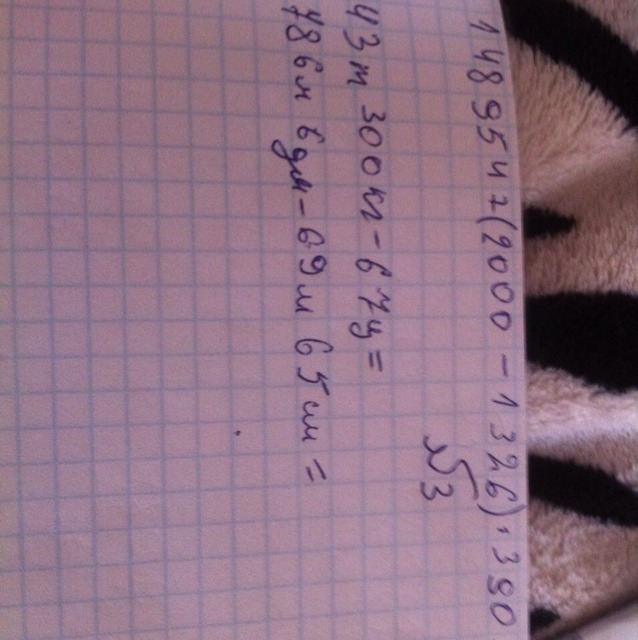 148954+(2000-1326)·390
№3
43т 300кг-67ц=
786м 6дм-69м 65см=